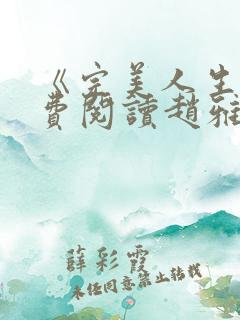 《完美人生
費閱讀趙雅
薛彩霞
未經同意禁止轉載